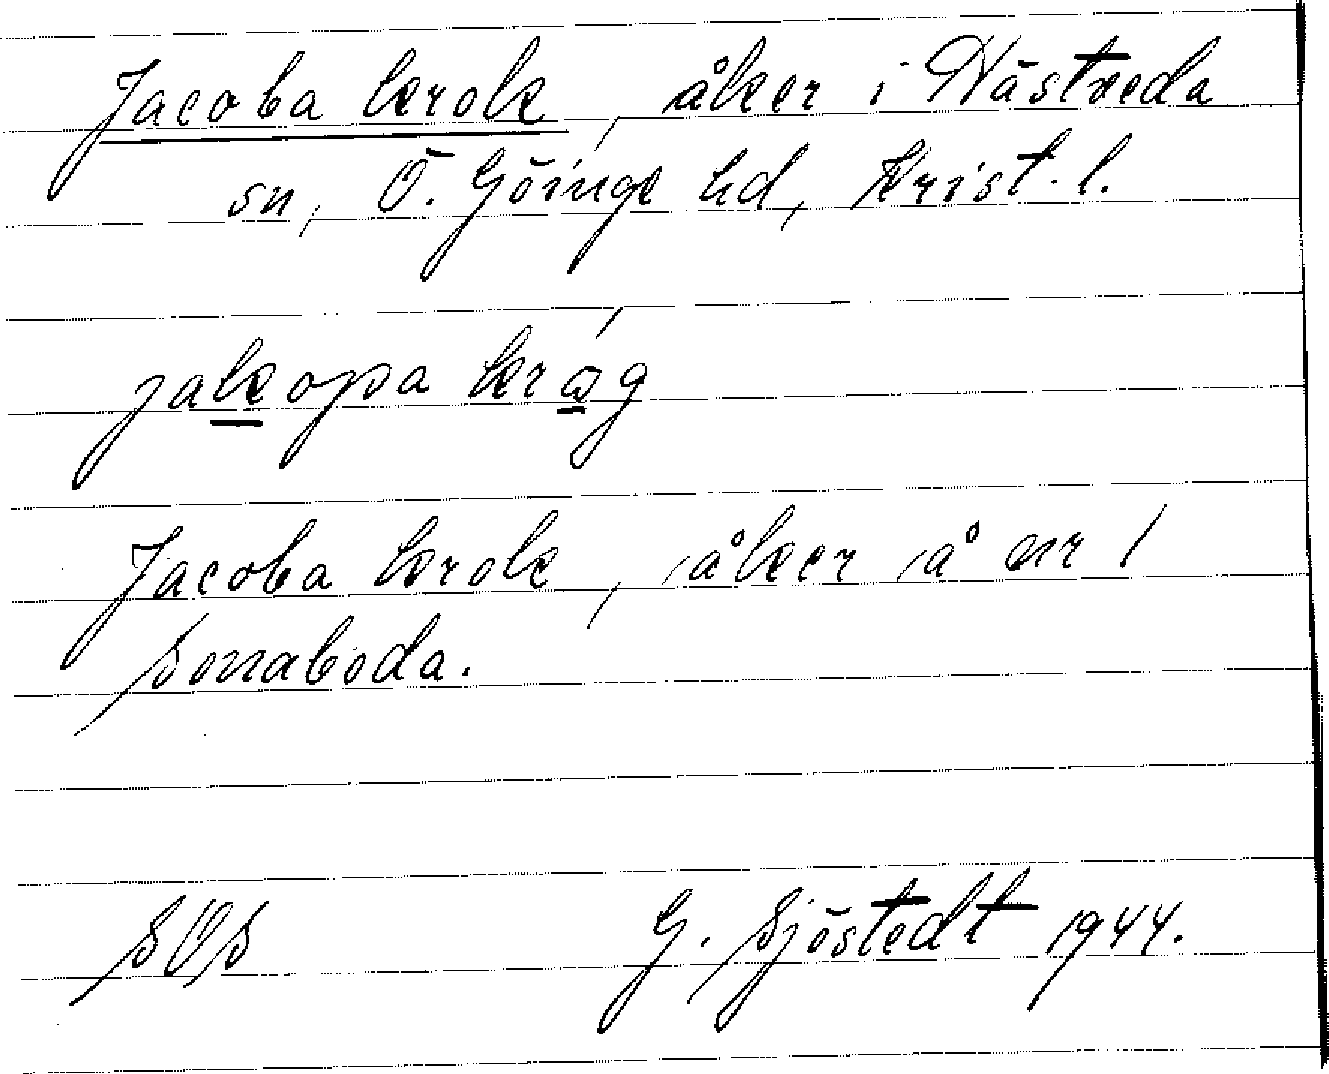 Jacoba krok, åker i Hästveda
sn, Ö. Göinge hd, Krist. l.
jakopa krǻg
Jacoba krok, åker å nr 1
Sonnaboda.
SOS G. Sjöstedt 1944.